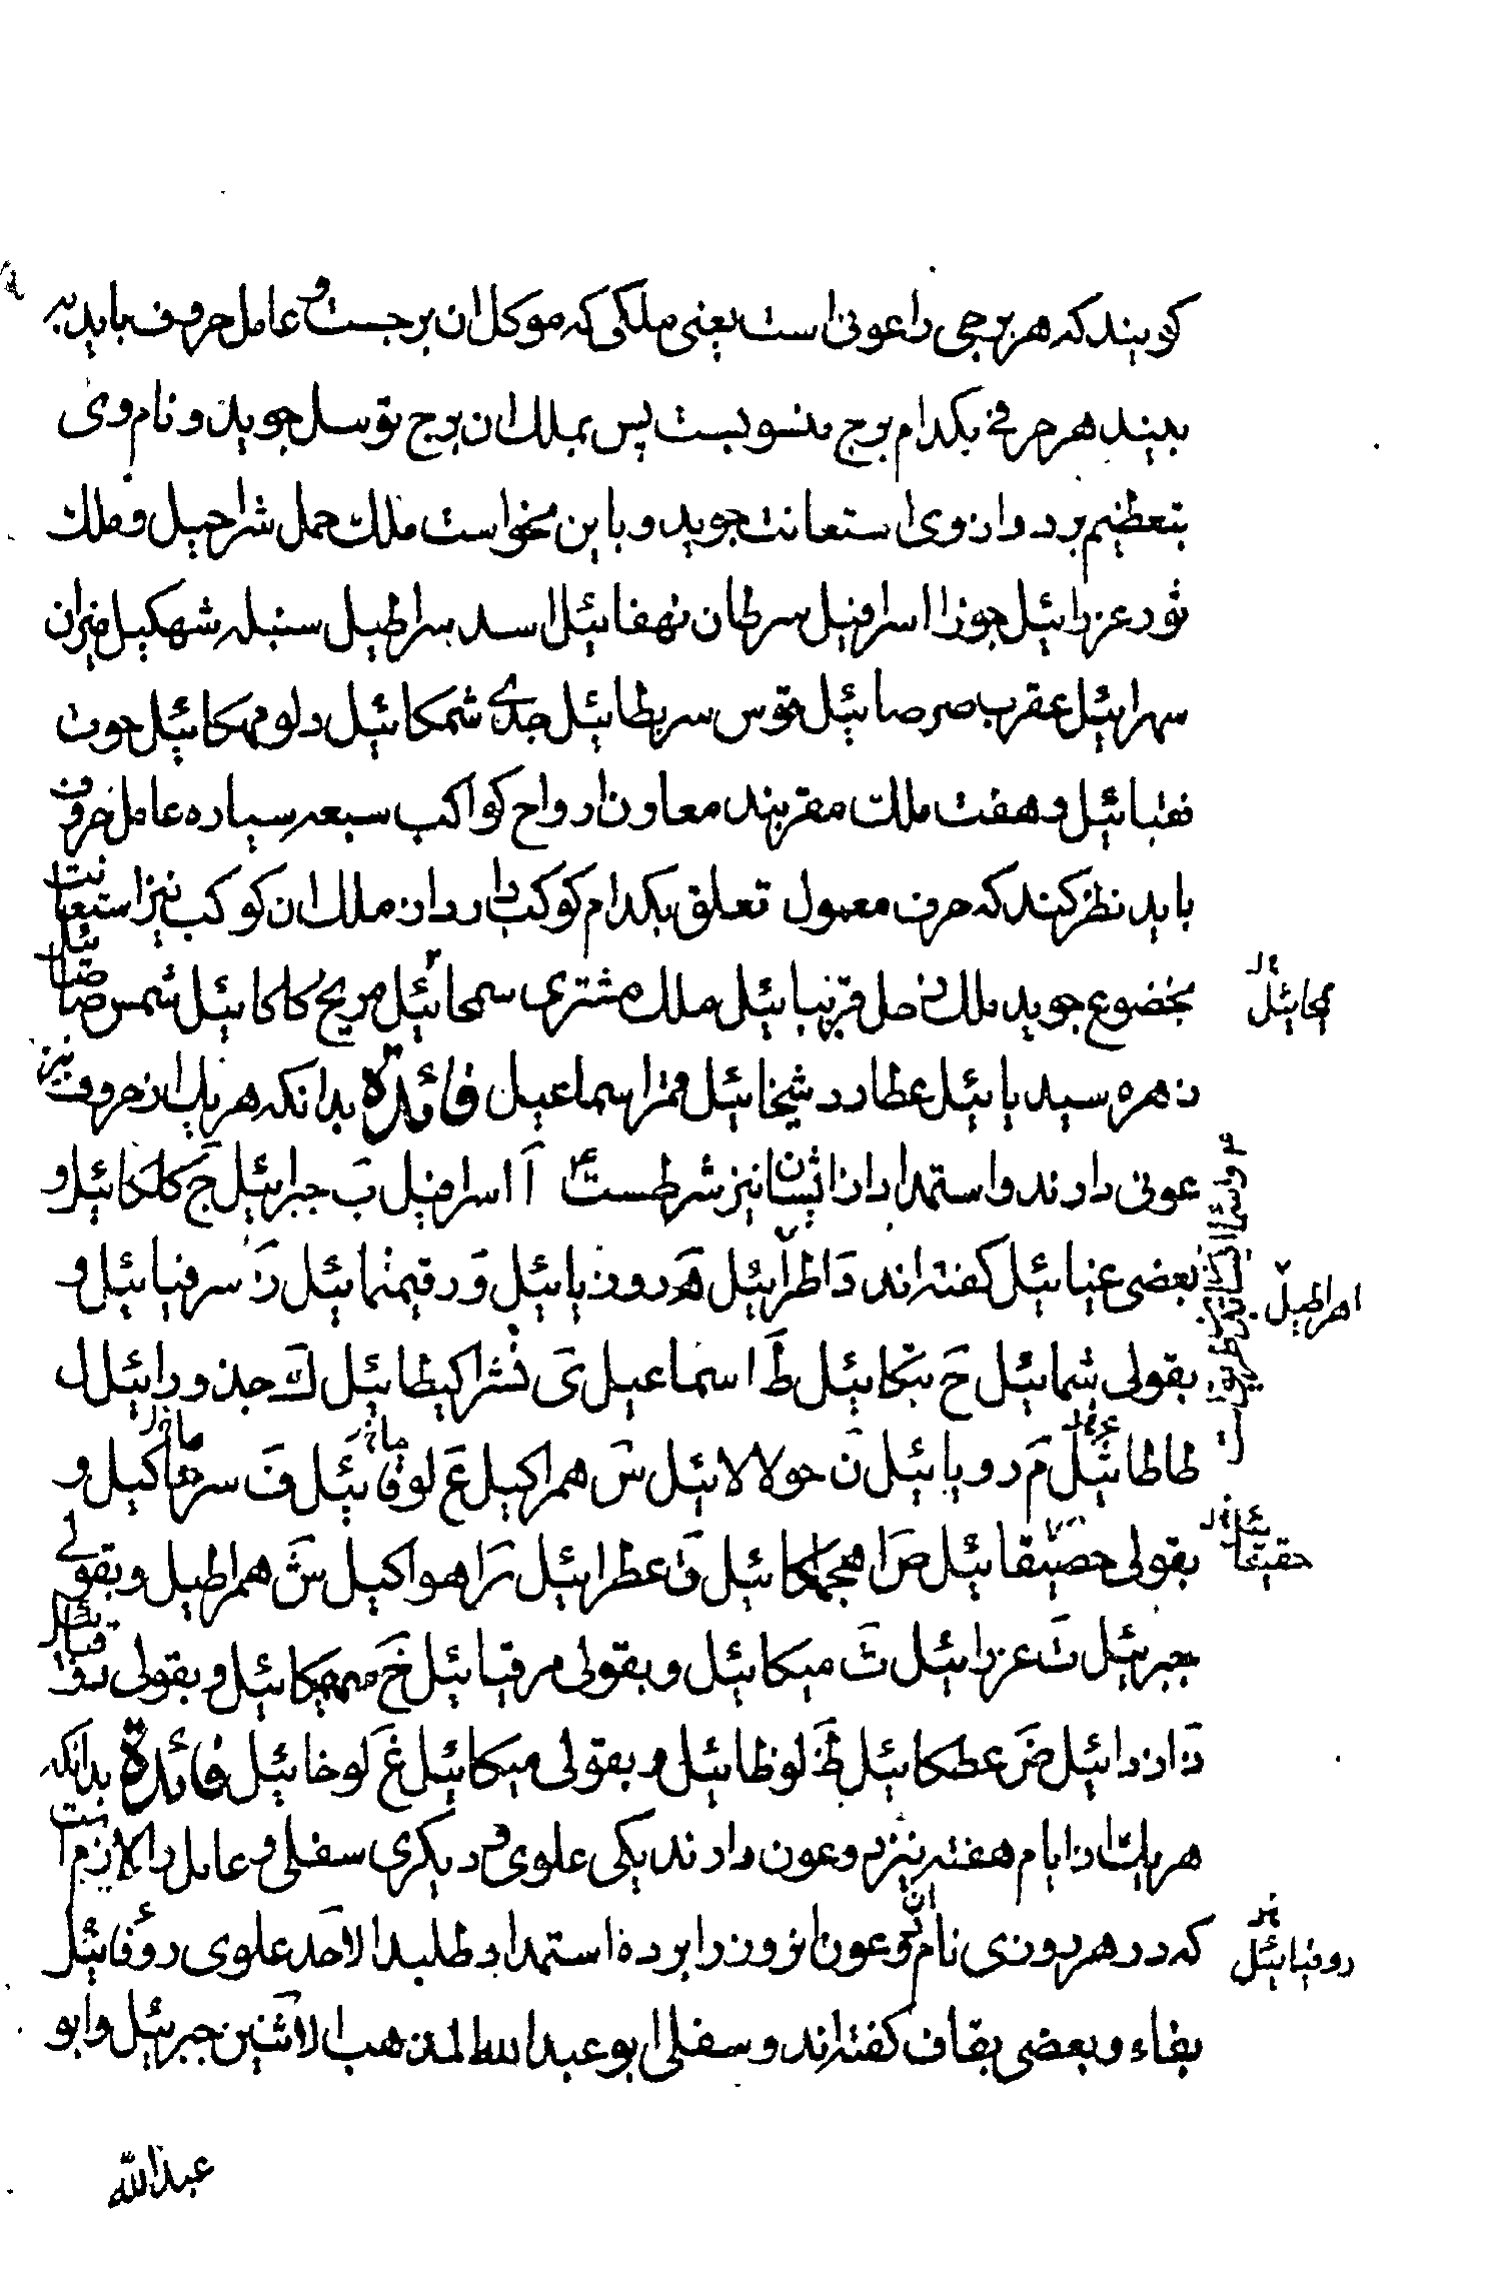 کویند که هر برجی را عونی است یعنی ملکی که موکل ان برجست و عامل حروف باید به
بیند هر حرفی بکدام برج منسوبست پس بملک ان برج توسل جوید و نام وی
بتعظیم برد و از وی استعانت جوید و باین نخواست ملک حمل شراحیل و ملک
ثور عزرائیل جوزا اسرافیل سرطان نهفائیل اسد سراطیل سنبله شهکیل میزان
سهرائیل عقرب صرصائیل قوس سریطائیل جدی شمکائیل دلو مهکائیل حوت
فقبائیل و هفت ملک مقربند معاون ارواح کواکب سبعه سیاره عامل حروف
باید نظر کند که حرف معمول تعلق بکدام کوکب دارد از ملک ان کوکب نیز استعانت
بخضوع جوید ملک زحل قرنیبائیل ملک مشتری سمحائیل مریخ کلکائیل شمس صاصائیل
محائیل
زهره سیدیائیل عطارد شیخائیل قمر اسماعیل فائدة بدانکه هر یک از حروف نیز
عونی دارند و استمداد از ایشان نیز شرطست آ اسرافیل ب جبرائیل ج کلکائیل و
بعضی عنیائیل کفته اند د اطرائیل ه دروزیائیل و رقیمتمائیل ز سرفیائیل و
اهراطیل
بقولی شمائیل ح تنکائیل ط اسماعیل ی شراکیطائیل ک جذورائیل ل
طاطائیل م رویائیل ن حولالائیل س همراکیل ع لوفائیل ف سرحماکیل و
بقولی حصیقائیل ص اهجمکائیل ق عطرائیل ر اهواکیل ش همراطیل و بقولی
حقیقائیل
جبرئیل ت عزرائیل ث میکائیل و بقولی مرقیائیل خ مهکائیل و بقولی
ذ ازرائیل ض عطکائیل ظ لوظائیل و بقولی میکائیل غ لوخائیل فائدة بدانکه
هر یک از ایام هفته نیز دو عون دارند یکی علوی و دیکری سفلی و عامل را لازم است
که در هر روزی نام ان دو عون ان روز را برده استمداد طلبد الاحد علوی روفائیل
روفیائیل
بفاء و بعضی بقاف کفته اند و سفلی ابو عبد الله المذهب الاثنین جبرئیل و ابو
عبد الله